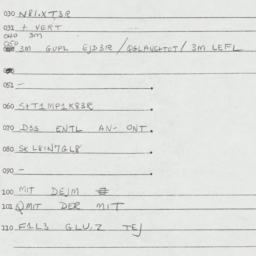 030 N81.XT3R
031 + VERT
040 3M
050 3M GUPL EJD3R /QGLAUCHTUT/ 3M LEFL
051 -
060 S+T1MP1K83R
070 D33 ENTL AN- ONT.
080 SKL8IN7GL8
090 -
100 MIT DEJM
101 QMIT DER MIT
110 F1L3 GLU.Z TEJ